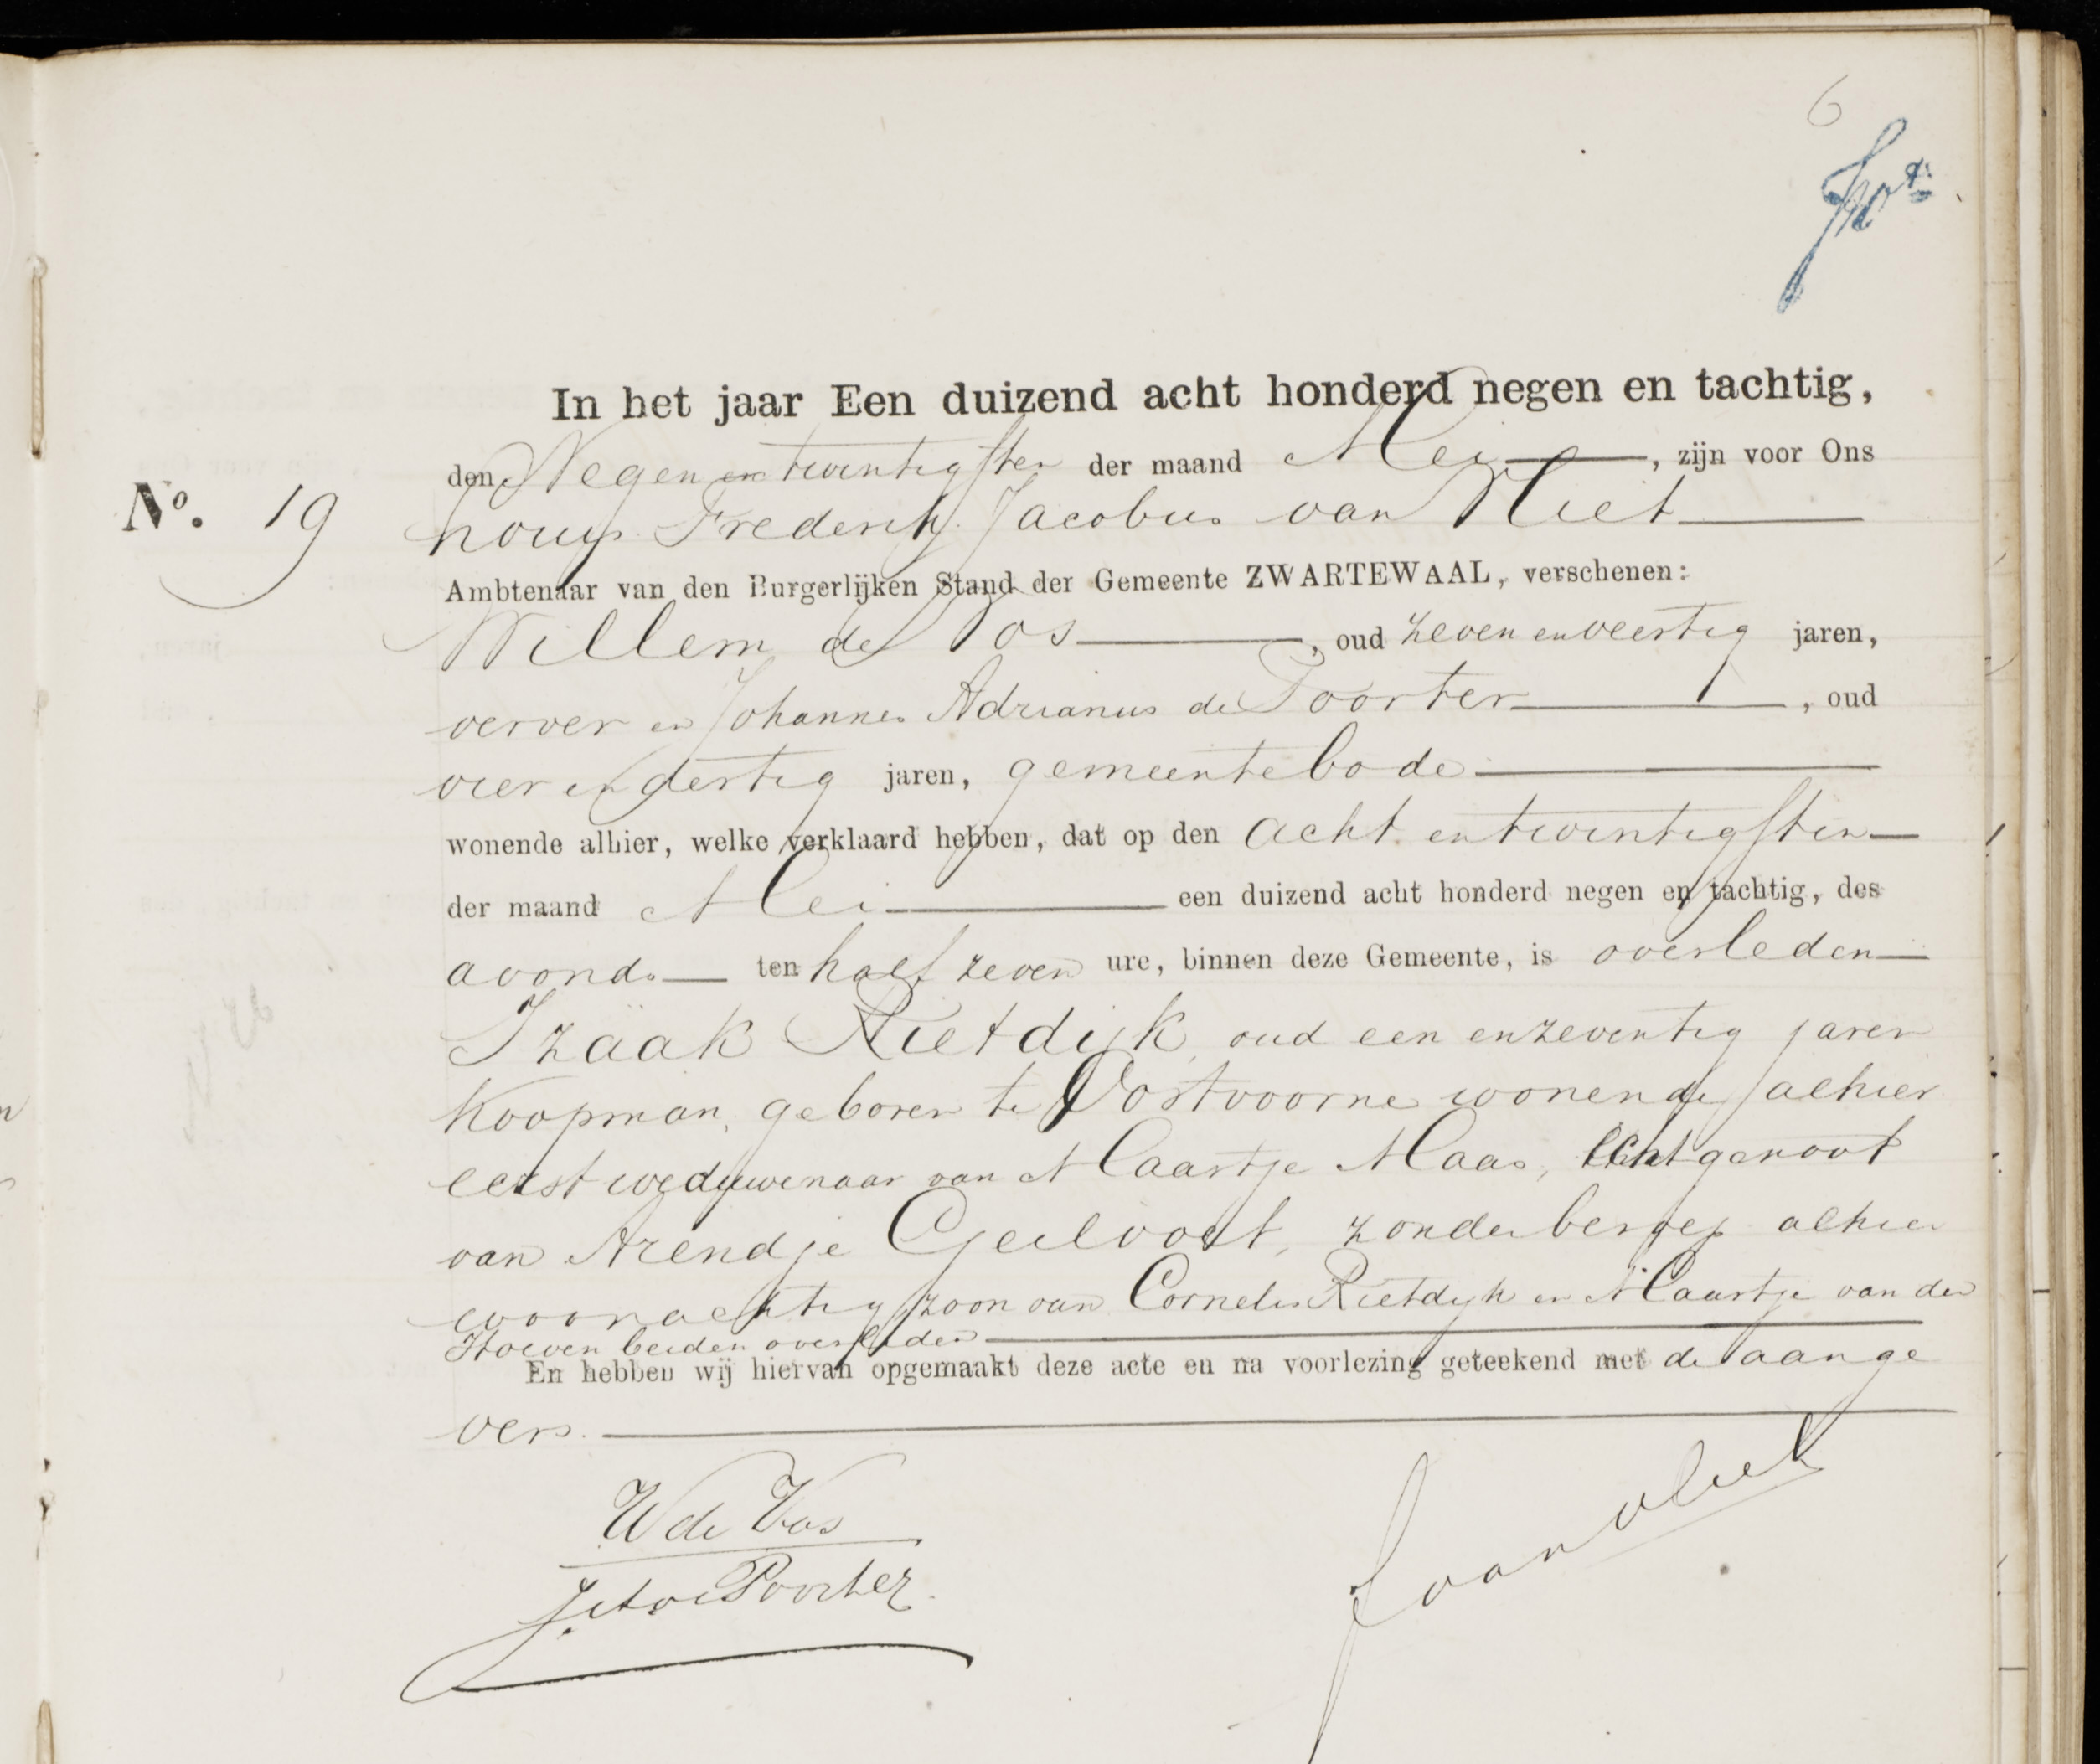 6
In het jaar Een duizend acht honderd negen en tachtig,
den Negen en twintigsten der maand Mei, zijn voor Ons
No. 19
Frederik Jacobus van Vliet
Ambtenaar van den Burgerlijken Stand der Gemeente ZWARTEWAAL, verschenen:
Willem de Vos, oud zeven en veertig jaren,
verver en Johannes Adrianus de Poorter, oud
vier en dertig jaren, gemeentebode
wonende alhier, welke verklaard hebben, dat op den acht en twintigsten
der maand Mei een duizend acht honderd negen en tachtig, des
avonds ten half zeven ure, binnen deze Gemeente, is overleden
Izäak Rietdijk, oud een en zeventig jaren
Koopman, geboren te Oostvoorne wonende alhier
eerst weduwenaar van Maartje Maas, Echtgenoot
van Arendje Geilvoet, zonder beroep alhier
woonachtig zoon van Cornelis Rietdijk en Maartje van der
Hoeven beiden overleden
En hebben wij hiervan opgemaakt deze acte en na voorlezing geteekend met de aange
vers.
W de Vos
J. A. de Poorter
van Vliet